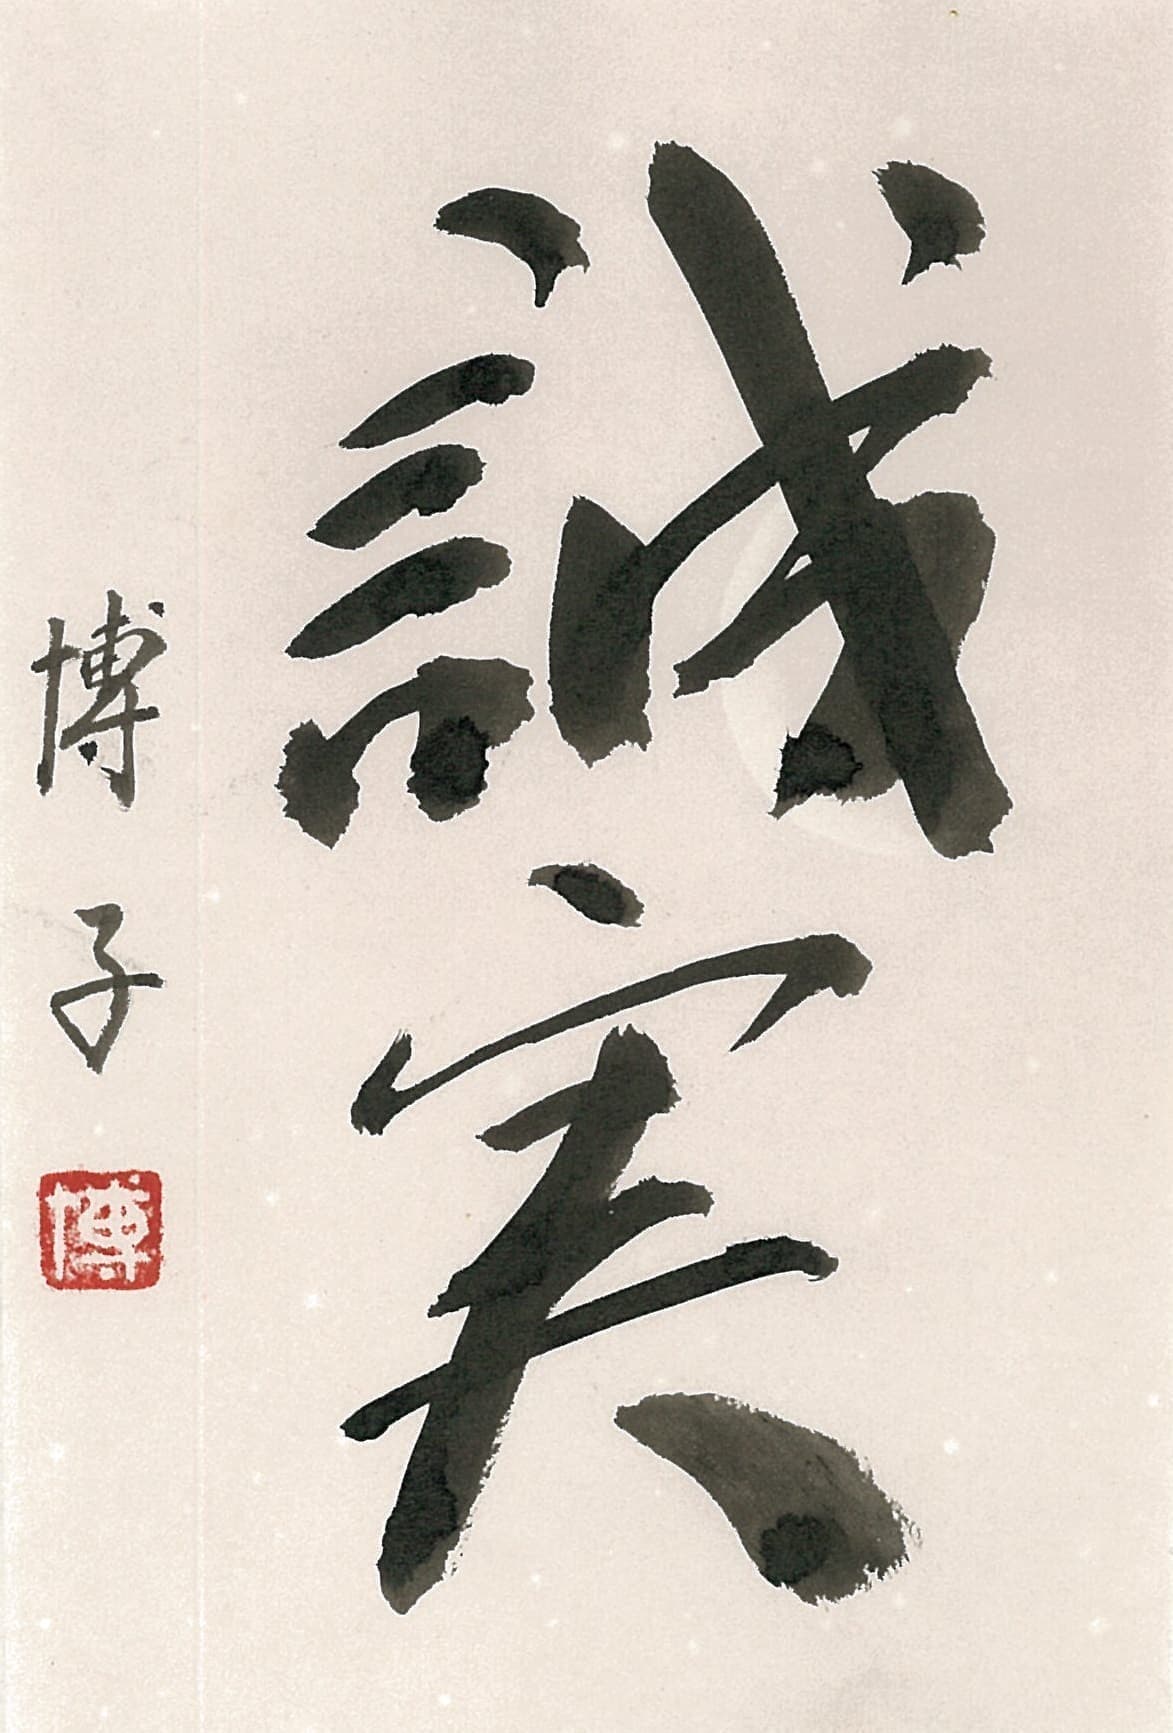 誠実
博子
博